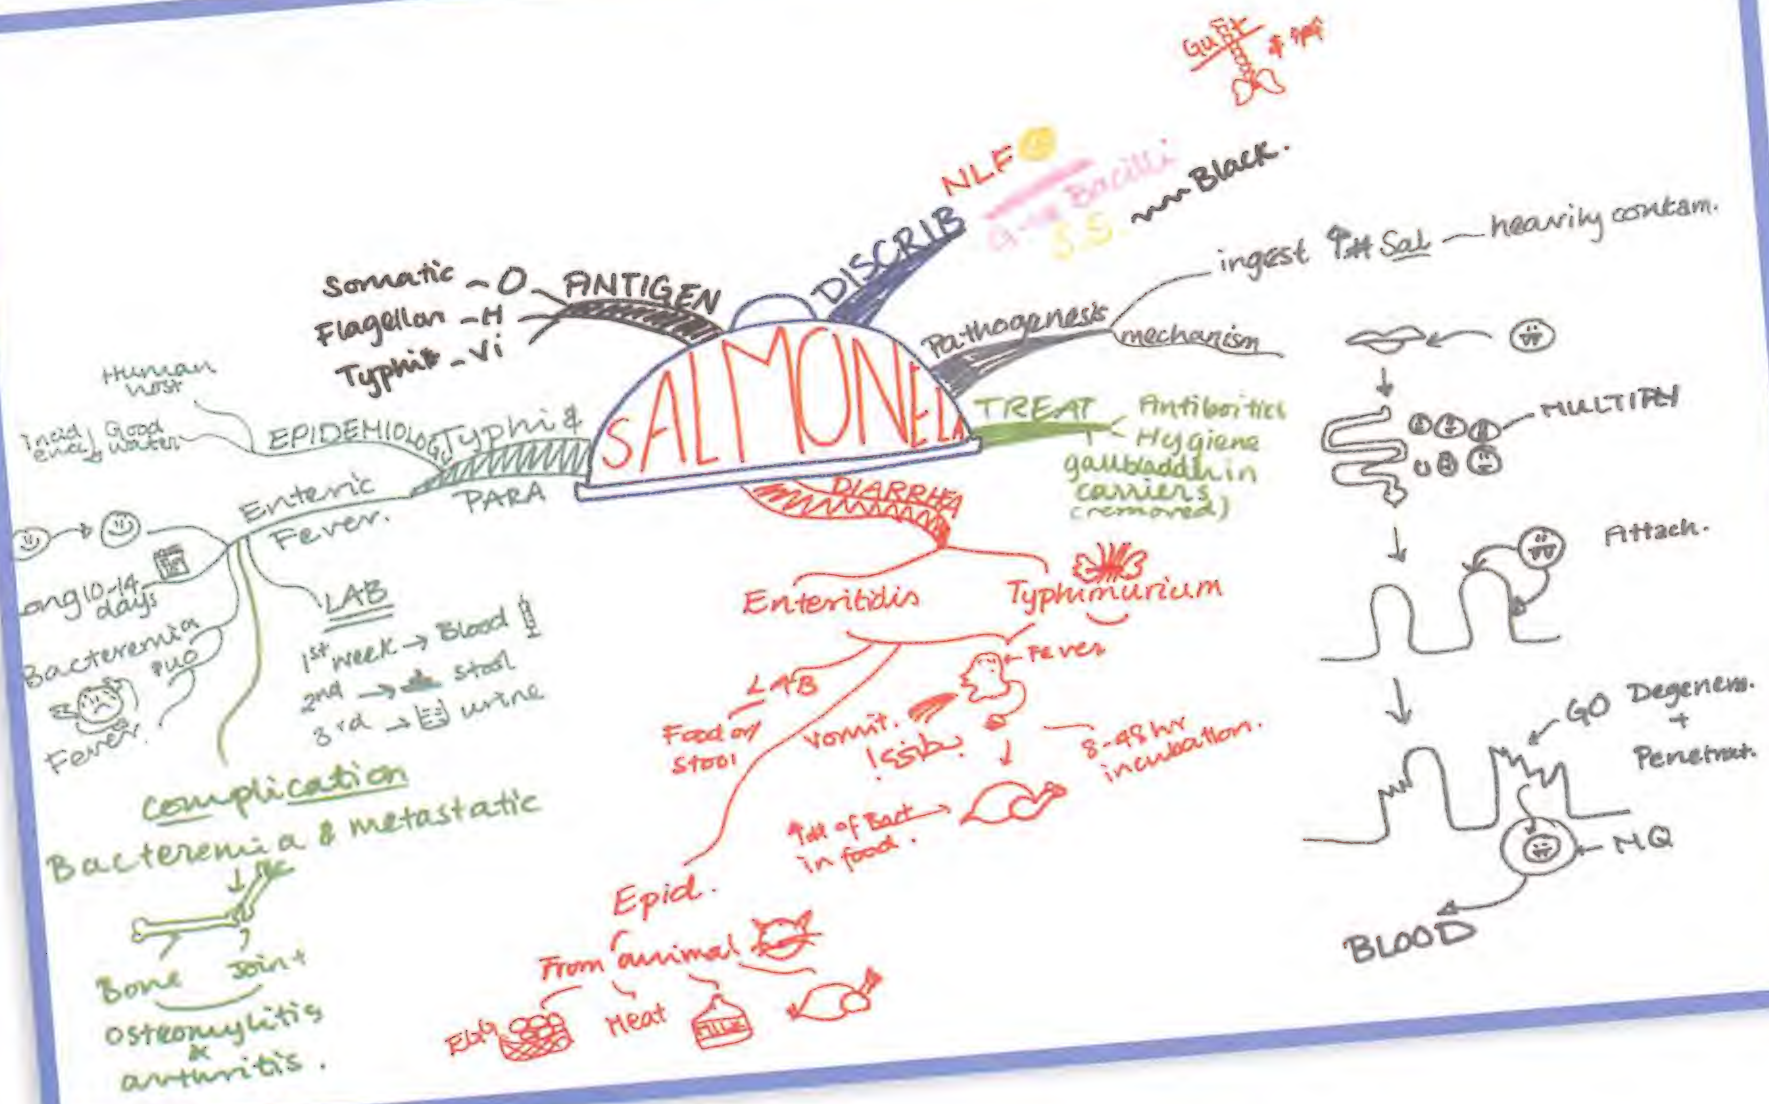 SALMONELA
DISCRIB
NLF
G-ve Bacilli
S.S. Black.
ANTIGEN
Somatic - O
Flagellar - H
Typhi - Vi
Pathogenesis
ingest ↑# Sal - heavily contam.
mechanism
MULTIPLY
Attach.
GO Degenem.
+
Penetrat.
MQ
BLOOD
TREAT
Antibiotics
Hygiene
gallbladder in
carriers
(removed)
Typhi &
PARA
EPIDEMIOLOGY
Human
host
Good
water
Enteric
Fever.
long 10-14
days
Bacteremia
PUO
Fever.
LAB
1st week → Blood
2nd → stool
3rd → urine
Complication
Bacteremia & metastatic
Bone Joint
Osteomylitis
&
arthritis.
DIARRHEA
Enteritidis
Typhimurium
LAB
Food or
stool
Fever
Vomit.
8-48hr
incubation.
↑# of Bact
in food.
Epid.
From animal
EGG
Meat
MILK